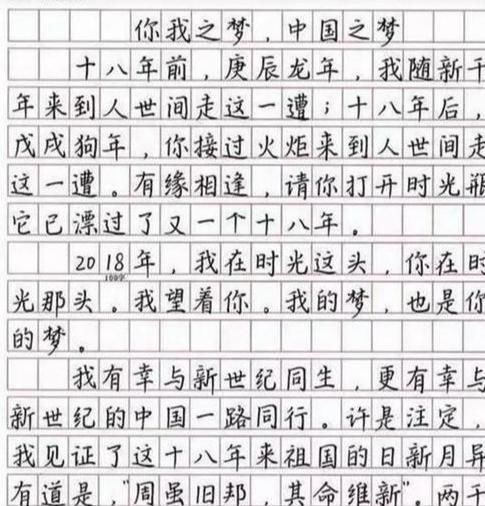 你我之梦，中国之梦
十八年前，庚辰龙年，我随新千
年来到人世间走这一遭；十八年后，
戊戌狗年，你接过火炬来到人世间走
这一遭。有缘相逢，请你打开时光瓶
它已漂过了又一个十八年。
2018年，我在时光这头，你在时
100字
光那头。我望着你。我的梦，也是你
的梦。
我有幸与新世纪同生，更有幸与
新世纪的中国一路同行。许是注定，
我见证了这十八年来祖国的日新月异
有道是，“周虽旧邦，其命维新”。两千